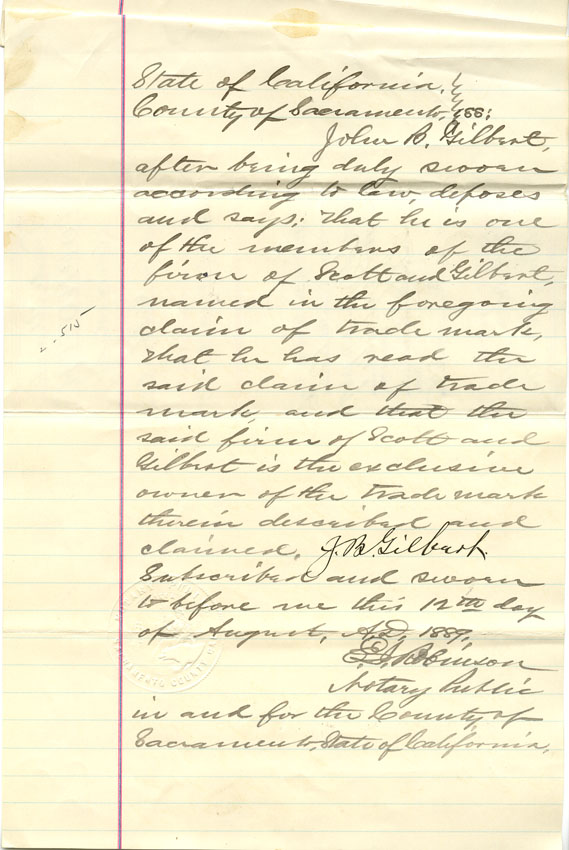 State of California,
County of Sacramento, } ss:
John B. Gilbert,
after being duly sworn
according to law, deposes
and says: that he is one
of the members of the
firm of Scott and Gilbert,
named in the foregoing
claim of trade mark,
that he has read the
said claim of trade
mark, and that the
said firm of Scott and
Gilbert is the exclusive
owner of the trade mark
therein described and
claimed. J. B. Gilbert.
Subscribed and sworn
to before me this 12th day
of August, A.D. 1889.
Robinson
Notary Public
in and for the County of
Sacramento, State of California.